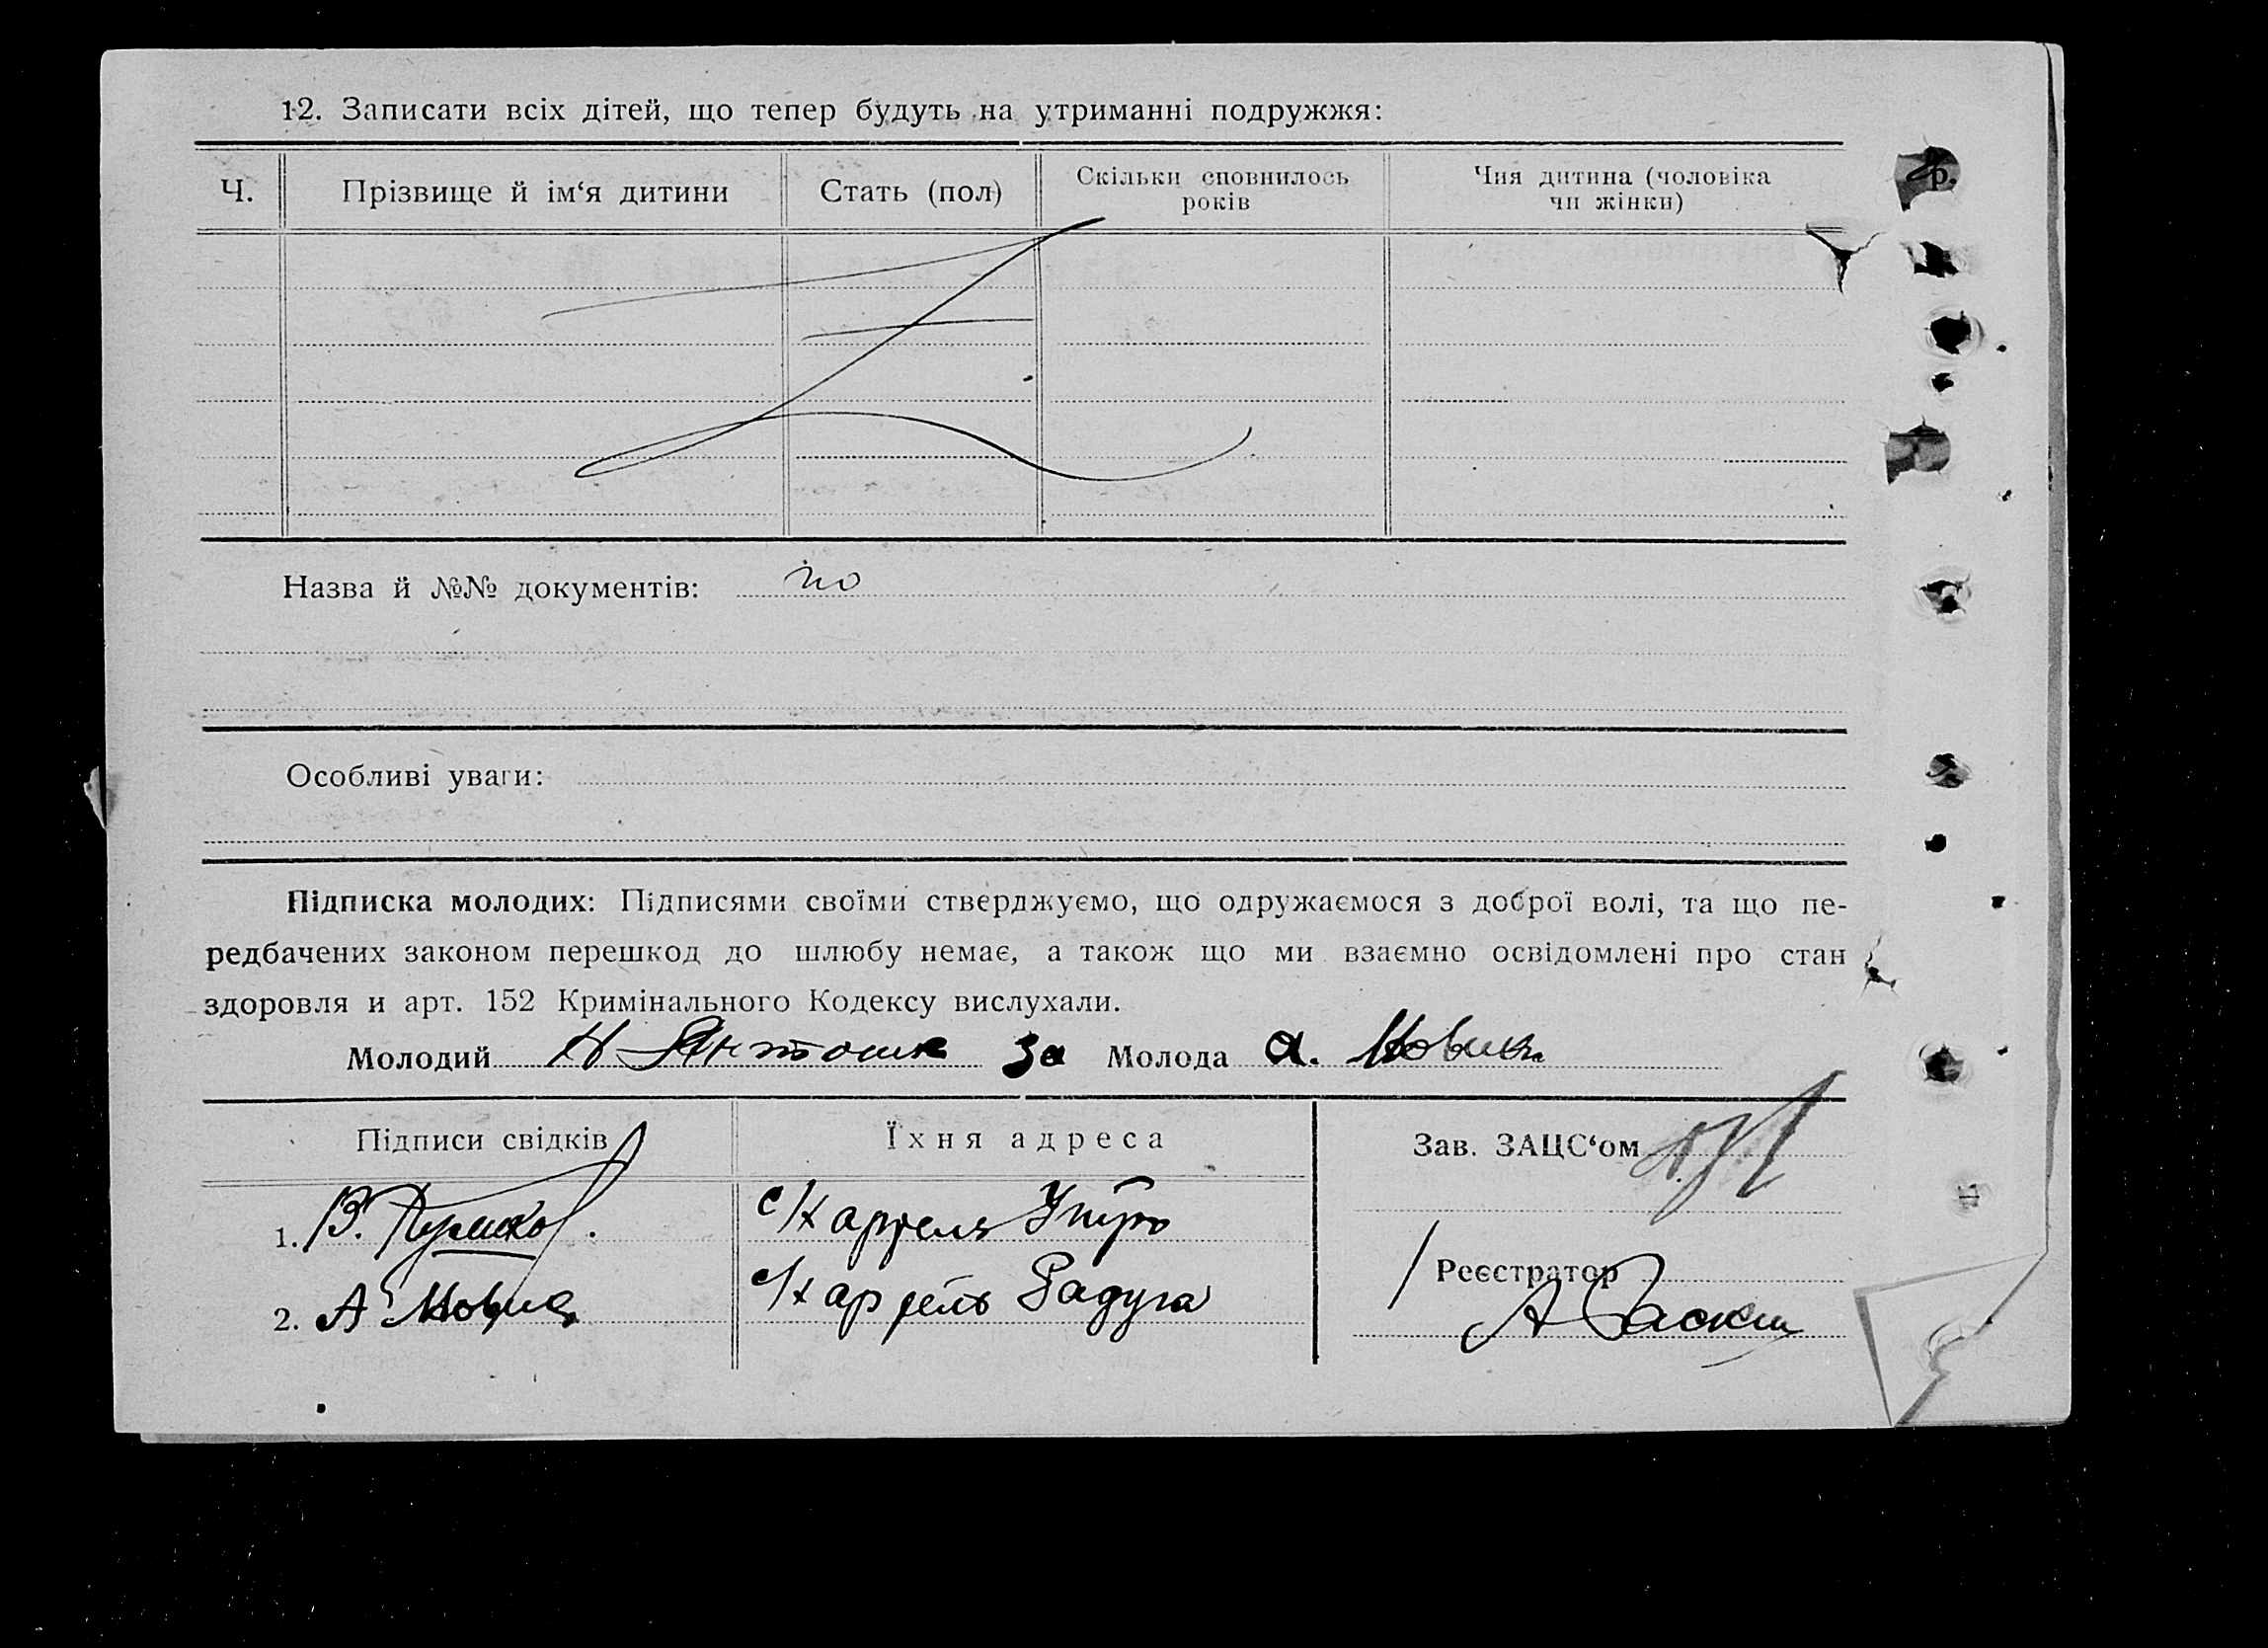 12. Записати всіх дітей, що тепер будуть на утриманні подружжя:
Ч.
Прізвище й ім‘я дитини
Стать (пол)
Скільки сповнилось
років
Чия дитина (чоловіка
чи жінки)
р.
Назва й №№ документів:
Особливі уваги:
Підписка молодих: Підписями своїми стверджуємо, що одружаємося з доброї волі, та що пе-
редбачених законом перешкод до шлюбу немає, а також що ми взаємно освідомлені про стан
здоровля и арт. 152 Кримінального Кодексу вислухали.
Молодий за Молода А.
Підписи свідків
Їхня адреса
Зав. ЗАЦС‘ом
1. В.
с/х артель
2. А
с/х артель Радуга
Реєстратор
А